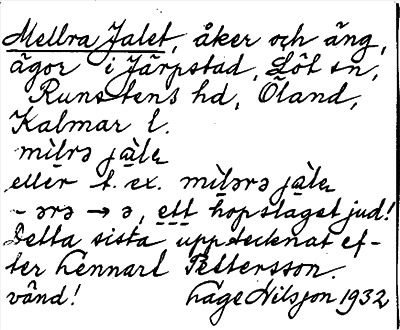 Mellra Jalet, åker och äng,
ägor i Järpstad, Löt sn,
Runstens hd, Öland,
Kalmar l.
mìlrə jà̤le
eller t. ex. mìlərə jà̤le
- ərə → ə, ett hopslaget jud!
Detta sista upptecknat ef-
ter Lennart Pettersson.
vänd! Håge Nilsson 1932